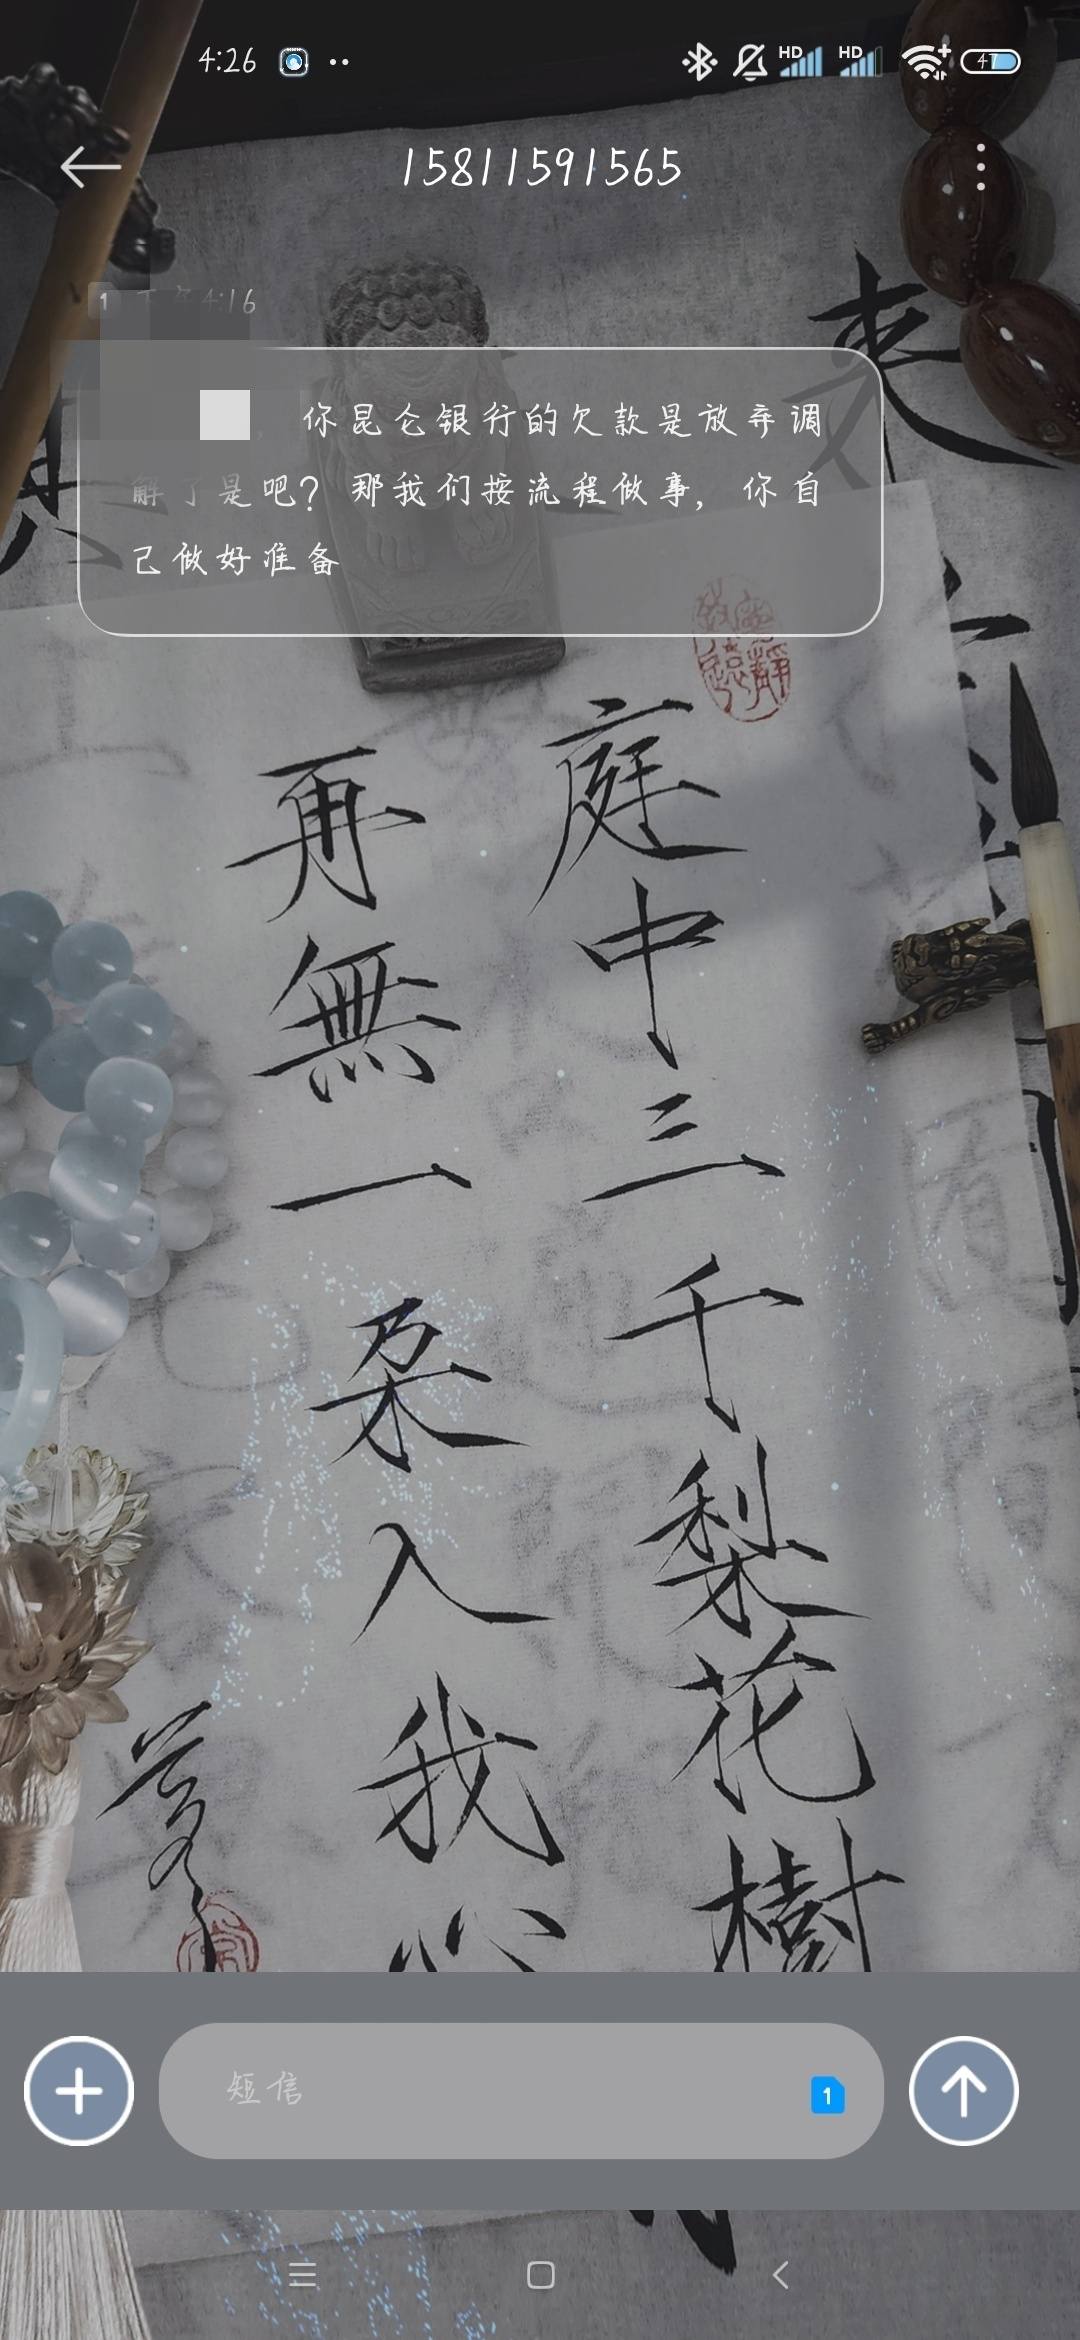 4:26
HD HD 47
15811591565
1 下午4:16
你昆仑银行的欠款是放弃调
解了是吧？那我们按流程做事，你自
己做好准备
来
庭中三千梨花樹
再無一朵入我心
短信
1